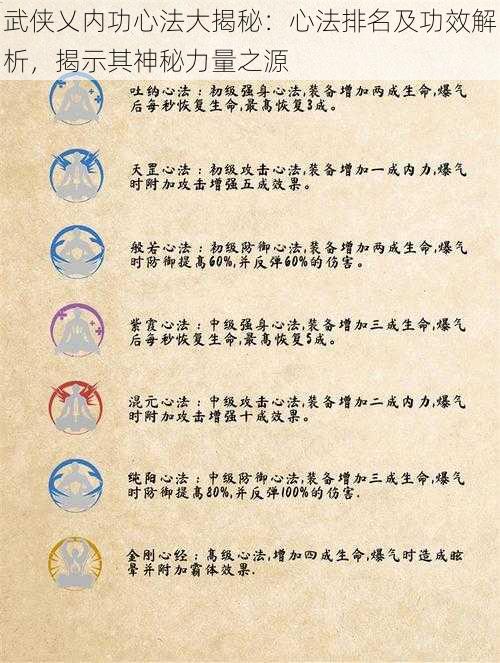 武侠乂内功心法大揭秘：心法排名及功效解
析，揭示其神秘力量之源
吐纳心法：初级强身心法,装备增加两成生命,爆气
后每秒恢复生命,最高恢复3成。
天罡心法：初级攻击心法,装备增加一成内力,爆气
时附加攻击增强五成效果。
般若心法：初级防御心法,装备增加两成生命,爆气
时防御提高60%,并反弹60%的伤害。
紫霞心法：中级强身心法,装备增加三成生命,爆气
后每秒恢复生命,最高恢复5成。
混元心法：中级攻击心法,装备增加二成内力,爆气
时附加攻击增强十成效果。
纯阳心法：中级防御心法,装备增加三成生命,爆气
时防御提高80%,并反弹100%的伤害.
金刚心经：高级心法,增加四成生命,爆气时造成眩
晕并附加霸体效果.